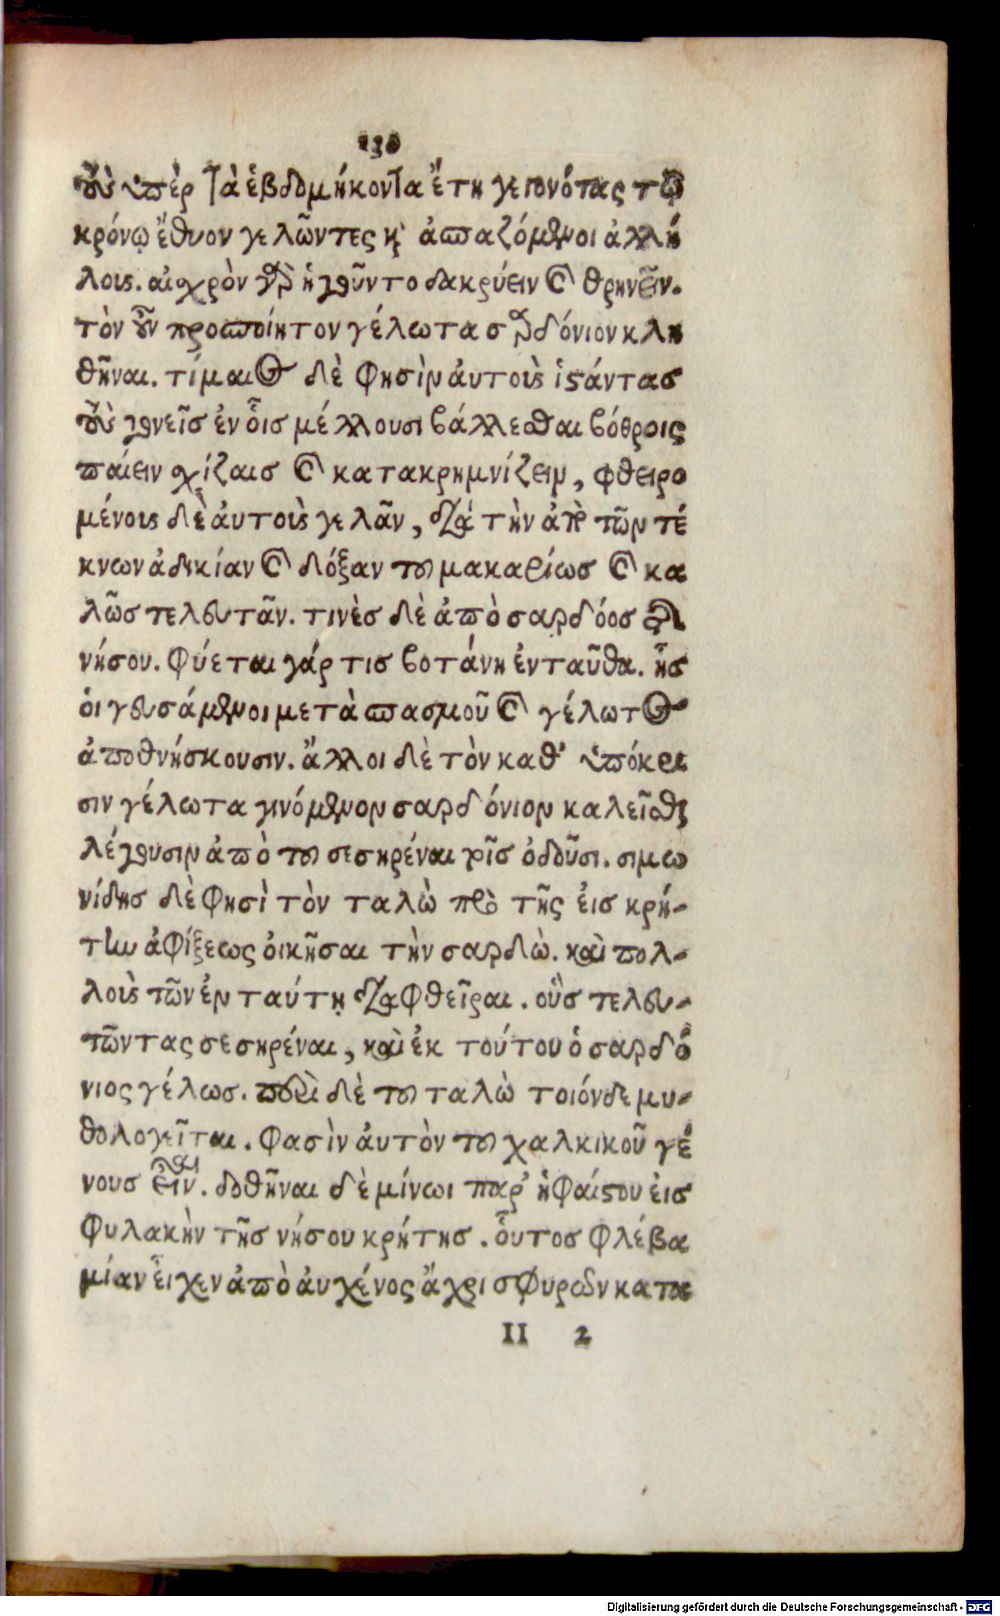 130
τοὺς ὑπὲρ τὰ ἑβδομήκοντα ἔτη γεγονότας τῷ
κρόνῳ ἔθυον γελῶντες καὶ ἀσπαζόμενοι ἀλλή
λους. αἰσχρὸν γὰρ ἡγοῦντο δακρύειν καὶ θρηνεῖν.
τὸν οὖν προσποίητον γέλωτα σαρδόνιον κλη
θῆναι. τίμαιος δὲ φησὶν ἀυτοὺς ἱστάντας
τοὺς γονεῖς ἐν οἷς μέλλουσι βάλλεσθαι βόθροις
παίειν σχίζαις καὶ κατακρημνίζειν, φθειρο
μένους δὲ ἀυτοὺς γελᾶν, διὰ τὴν ἀπὸ τῶν τέ
κνων ἀδικίαν καὶ δόξαν τοῦ μακαρίως καὶ κα
λῶς τελευτᾶν. τινὲς δὲ ἀπὸ σαρδόος τῆς
νήσου. φύεται γάρ τις βοτάνη ἐνταῦθα. ἧς
ὁι γευσάμενοι μετὰ σπασμοῦ καὶ γέλωτος
ἀποθνήσκουσιν. ἄλλοι δὲ τὸν καθ' ὑπόκρι
σιν γέλωτα γινόμενον σαρδόνιον καλεῖσθαι
λέγουσιν ἀπὸ τοῦ σεσηρέναι τοῖς ὀδοῦσι. σιμω
νίδης δὲ φησὶ τὸν ταλὼ πρὸ τῆς ἐις κρή-
την ἀφίξεως ὀικῆσαι τὴν σαρδὼ. καὶ πολ-
λοὺς τῶν ἐν ταύτῃ διαφθεῖραι. οὓς τελευ-
τῶντας σεσηρέναι, καὶ ἐκ τούτου ὁ σαρδό
νιος γέλως. περὶ δὲ τοῦ ταλὼ τοιόνδε μυ-
θολογεῖται. φασὶν ἀυτὸν τοῦ χαλκικοῦ γέ
νους εἶναι. δοθῆναι δὲ μίνωι παρ' ἡφαίστου ἐις
φυλακὴν τῆς νήσου κρήτης. οὗτος φλέβα
μίαν εἶχεν ἀπὸ ἀυχένος ἄχρι σφυρῶν κατα
II 2
Digitalisierung gefördert durch die Deutsche Forschungsgemeinschaft - DFG